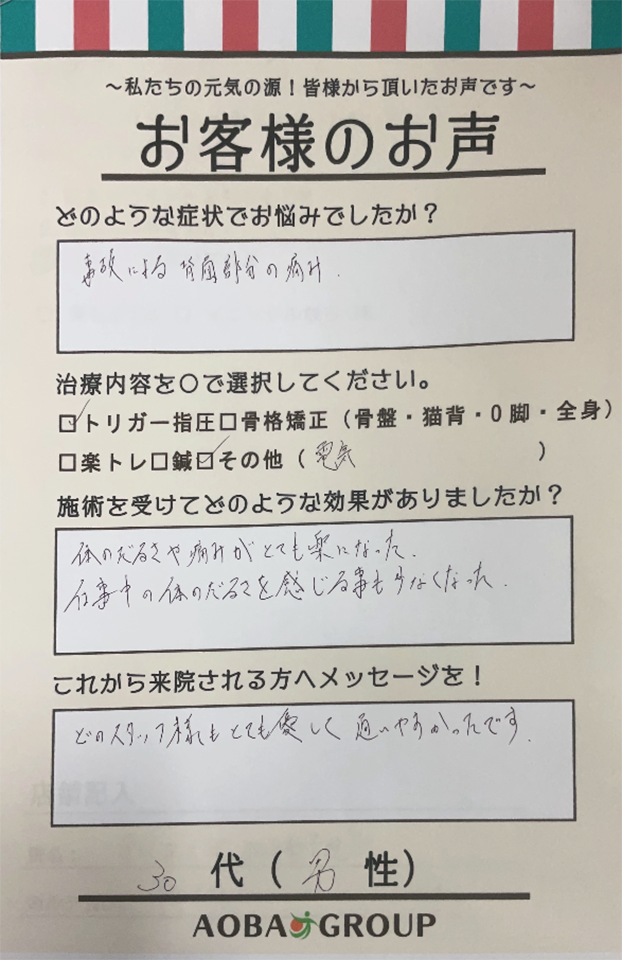 ～私たちの元気の源！皆様から頂いたお声です～
お客様のお声
どのような症状でお悩みでしたか？
事故による背面部分の痛み.
治療内容を〇で選択してください。
☑トリガー指圧□骨格矯正（骨盤・猫背・O脚・全身）
□楽トレ□鍼☑その他（電気）
施術を受けてどのような効果がありましたか？
体のだるさや痛みがとても楽になった.
仕事中の体のだるさを感じる事も少なくなった.
これから来院される方へメッセージを！
どのスタッフ様もとても優しく通いやすかったです.
30代（男性）
AOBA GROUP